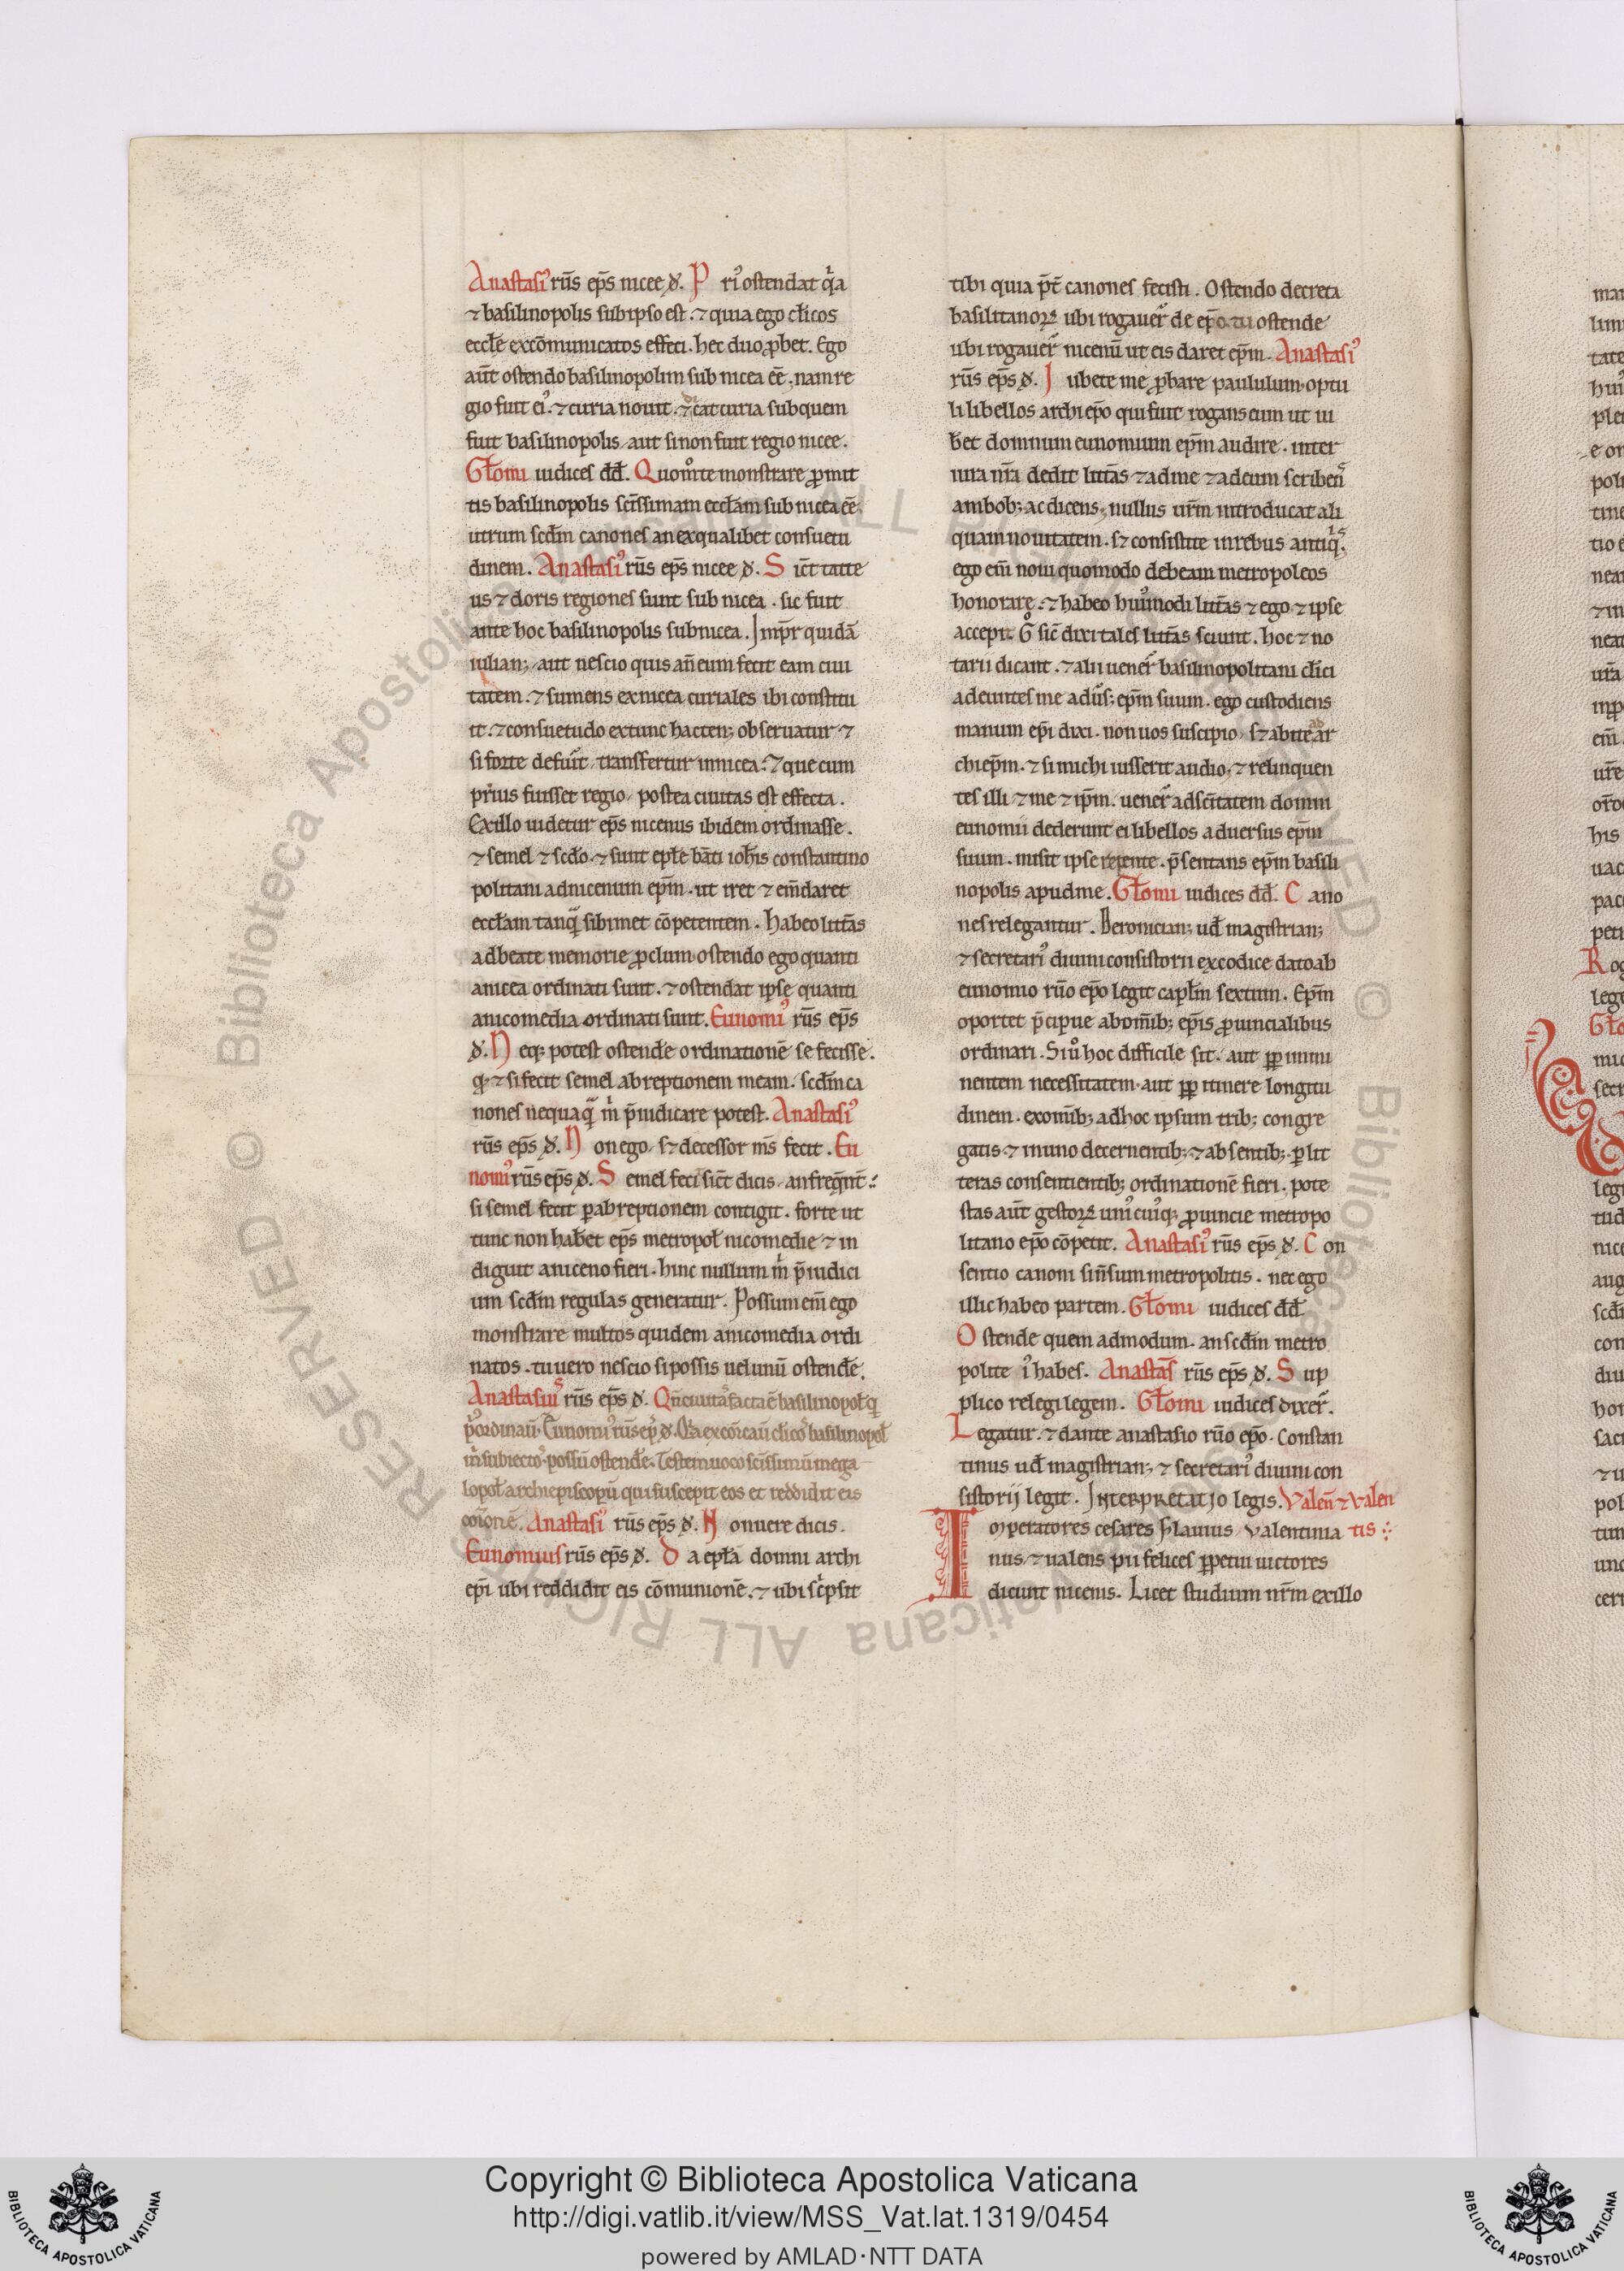 Anastasiꝰ rūs ep̄s nicee đ. P riꝰ ostendat q̓a
⁊ basilinopolis sub ipso est. ⁊ quia ego cł̓icos
eccłe excōmunicatos effeci. hec duo ꝓbet. Ego
aūt ostendo basilinopolim sub nicea eē. nam re
gio fuit eiꝰ. ⁊ curia nouit. ⁊ dicat curia sub quem
fuit basilinopolis aut si non fuit regio nicee.
Głomi iudices dd̄. Quom̊te monstrare ꝓmit
tis basilinopolis sc̄issimam eccłam sub nicea eē.
utrum scđm canones an ex qualibet consuetu
dinem. Anastasiꝰ rūs ep̄s nicee đ. S ic̄t tatte
us ⁊ doris regiones sunt sub nicea . sic fuit
ante hoc basilinopolis sub nicea. Imp̄r quidā
iulian; aut nescio quis an̄ eum fecit eam ciui
tatem. ⁊ sumens ex nicea curiales ibi constitu
it. ⁊ consuetudo ex tunc hacten; obseruatur ⁊
si forte defuīt transfertur in nicea. ⁊ que cum
prius fuisset regio postea ciuitas est effecta.
Ex illo uidetur ep̄s nicenus ibidem ordinasse.
⁊ semel ⁊ scđo. ⁊ sunt epłe bāti ioħis constantino
politani ad nicenum ep̄m. ut iret ⁊ em̄daret
eccłam tanq̄ sibimet cōpetentem. Habeo litt̄as
ad beate memorie ꝓclum ostendo ego quanti
a nicea ordinati sunt. ⁊ ostendat ipse quanti
a nicomedia ordinati sunt. Eunomiꝰ rūs ep̄s
đ. N eq; potest ostendĕ ordinationē se fecisse.
q; ⁊ si fecit semel abreptionem meam. scđm ca
nones nequaq̄ m̓ p̄iudicare potest. Anastasiꝰ
rūs ep̄s đ. N on ego. sꝫ decessor ms̄ fecit. Eu
nomiꝰ rūs ep̄s đ. S emel feci sic̄t dicis. an freq̄nt̄.
si semel fecit ꝑ abreptionem contigit. forte ut
tunc non haƀet ep̄s metropoł nicomedie ⁊ in
diguit a niceno fieri. hinc nullum m̓ p̄iudici
um scđm regulas generatur. Possum em̄ ego
monstrare multos quidem a nicomedia ordi
natos. tu uero nescio si possis uel unū ostendĕ.
Anastasiuſ rūs ep̄s đ.
Anastasiꝰ rūs ep̄s đ. N on uere dicis.
Eunomius rūs ep̄s đ. D a epła domni archi
ep̄i ubi reddidit eis cōmunionē. ⁊ ubi sc̓psit
tibi quia p̄t̄ canones fecisti. Ostendo decreta
basilitanoꝝ ubi rogauer̄ de ep̄o. tu ostende
ubi rogauer̄ nicenū ut eis daret ep̄m. Anastasiꝰ
rūs ep̄s đ. I ubete me ꝓbare paululum. optu
li libellos archiep̄o qui fuit rogans eum ut iu
ƀet domnum eunomium ep̄m audire. inter
uira nr̄a dedit litt̄as ⁊ ad me ⁊ ad eum scriben̄
ambob; ac dicens. nullus ur̄m introducat ali
quam nouitatem. sꝫ consistite in rebus antiq̓s.
ego em̄ noui quomodo debeam metropoleos
honorare. ⁊ habeo huiꝰmodi litt̄as ⁊ ego ⁊ ipse
accepi. G̊ sic̄ dixi tales litt̄as sciunt. hoc ⁊ no
tarii dicant. ⁊ alii uener̄ basilinopolitani cł̓ici
adeuntes me adūs; ep̄m suum. ego custodiens
manum ep̄i dixi. non uos suscipio. sꝫ abite ad ar
chiep̄m. ⁊ si michi iusserit audio. ⁊ relinquen
tes illi ⁊ me ⁊ ip̄m. uener̄ ad sc̄itatem domni
eunomii dederunt ei libellos aduersus ep̄m
suum. misit ipse repente. p̄sentans ep̄m basili
nopolis apud me. Głomi iudices dd̄. C ano
nes relegantur. Beronician; ud̄ magistrian;
⁊ secretariꝰ diuini consistorii ex codice dato ab
eunomio rūo ep̄o legit capłm sextum. Ep̄m
oportet p̄cipue ab om̄ib; ep̄is ꝓuincialibus
ordinari. Si ů hoc difficile sit. aut ꝓp̄ immi
nentem necessitatem. aut ꝓp̄ itinere longitu
dinem. ex om̄ib; ad hoc ipsum trib; congre
gatis ⁊ in uno decernentib; ⁊ absentib; ꝑ lit
teras consentientib; ordinationē fieri. pote
stas aūt gestoꝝ uniꝰcuiꝰq; ꝓuincie metropo
litano ep̄o cōpetit. Anastasiꝰ rūs ep̄s đ. C on
sentio canoni sin̄ sum metropolitis. nec ego
illic habeo partem. Głomi iudices dd̄
O stende quem admodum. an scđm metro
polite iꝰ habes. Anastas̄ rūs ep̄s đ. S up
plico relegi legem. Głomi iudices dixer̄.
L egatur. ⁊ dante anastasio rūo ep̄o. Constan
tinus ud̄ magistrian; ⁊ secretariꝰ diuini con
sistorij legit. Interpretatio legis. Valen̄ ⁊ Valen
I mperatores cesares Flauius Valentinia tis
nus ⁊ ualens pii felices ꝑpetui uictores
dicunt nicenis. Licet studium nr̄m ex illo
Copyright © Biblioteca Apostolica Vaticana
http://digi.vatlib.it/view/MSS_Vat.lat.1319/0454
powered by AMLAD·NTT DATA